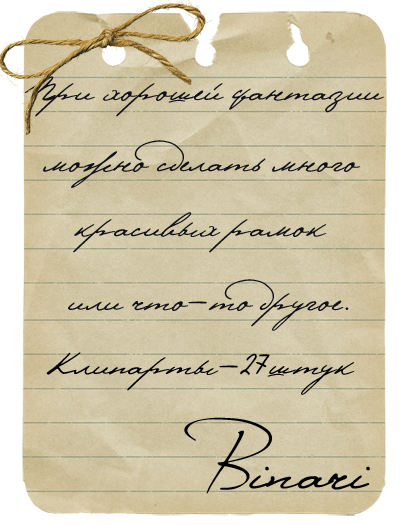 При хорошей фантазии
можно сделать много
красивых рамок
или что-то другое.
Клипарты-27 штук
Binari